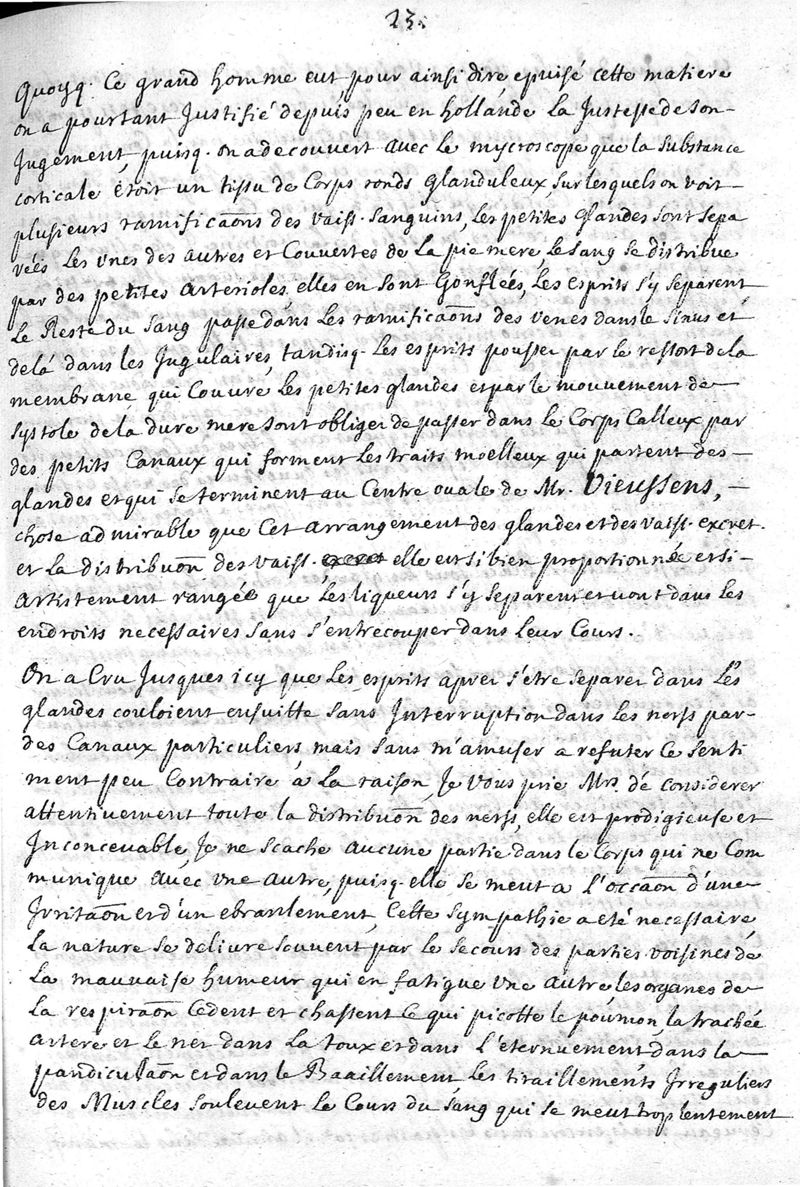 23.
quoyq. Ce grand homme eut pour ainsi dire epuisé cette matiere
on a pourtant Justifié depuis peu en hollande la Justesse de son
Jugement, puisq. on a decouvert avec le mycroscope que la substance
corticale étoit un tissu de Corps ronds glanduleux, sur lesquels on voit
plusieurs ramificaōns des vaiss. sanguins, les petites glandes sont sepa
reés les unes des autres et Couvertes de la pie mere, le sang se distribue
par des petites arterioles elles en sont gonflées, les esprits s'y separent
le Reste du sang passe dans les ramificaōns des venes dans le sinus et
delà dans les Jugulaires, tandisq. les esprits pousser par le ressort de la
membrane qui Couvre les petites glandes et par le mouvement de
systole de la dure mere sont obliger de passer dans le Corps Calleux par
des petits Canaux qui forment les traits moelleux qui partent des
glandes et qui se terminent au Centre ovale de Mr. Vieussens,
chose admirable que Cet arrangement des glandes et des vaiss. excret.
et la distribuōn des vaiss. elle est si bien proportionnée et si
artistement rangée que les liqueurs s'y separent et vont dans les
endroits necessaires sans s'entrecouper dans leur Cours.
On a Cru Jusques icy que les esprits aprer s'être separer dans les
glandes couloient ensuitte sans Interruption dans les nerfs par
des Canaux particuliers mais sans m'amuser a refuter ce senti
ment peu Contraire à la raison, Je vous prie Mrs. de considerer
attentivement toute la distribuōn des nerfs, elle est prodigieuse et
Inconcevable, Je ne scache aucune partie dans le Corps qui ne Com
munique avec une autre, puisq. elle se meut a l'occaōn d'une
Irritaōn et d'un ebranlement, Cette sympathie a eté necessaire
la nature se delivre souvent par le secours des parties voisines de
la mauvaise humeur qui en fatigue une autre les organes de
la respiraōn Cedent et chassent Ce qui picotte le poumon la trachée
artere et le nez dans la toux et dans l'éternuement dans la
pandiculaōn et dans le Baaillement, les tiraillements Irreguliers
des Muscles soulevent le Cours du sang qui se meut trop lentement